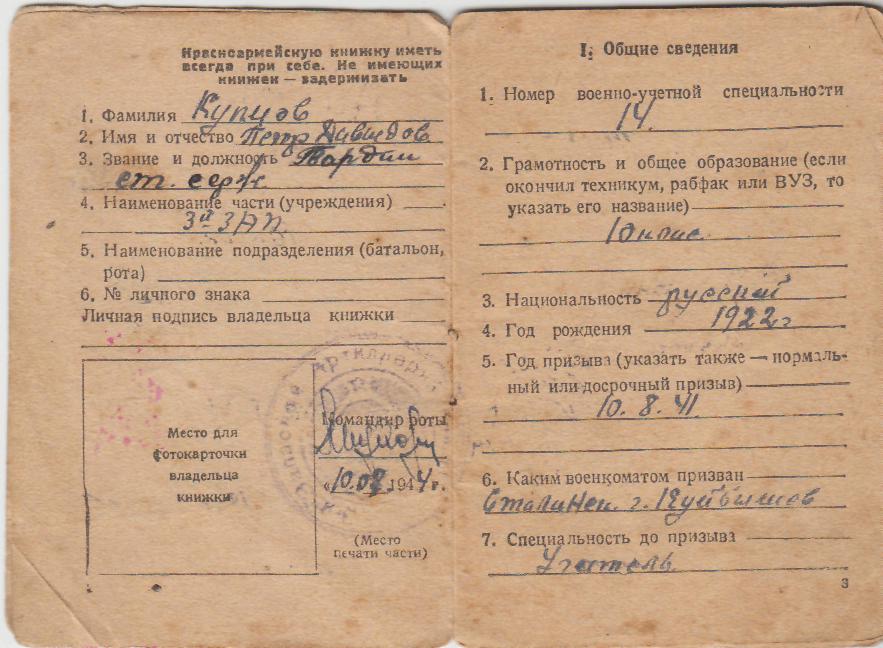 Красноармейскую книжку иметь
всегда при себе. Не имеющих
книжек — задерживать
1. Фамилия Купцов
2. Имя и отчество Петр Давыдов.
3. Звание и должность Гвардии
ст. серж.
4. Наименование части (учреждения)
3й ЗАП.
5. Наименование подразделения (батальон,
рота)
6. № личного знака
Личная подпись владельца книжки
Место для
фотокарточки
владельца
книжки
Командир роты
«10.08 1944 г.
(Место
печати части)
I. Общие сведения
1. Номер военно-учетной специальности
14.
2. Грамотность и общее образование (если
окончил техникум, рабфак или ВУЗ, то
указать его название)
10 клас.
3. Национальность русский
4. Год рождения 1922 г
5. Год призыва (указать также — нормаль-
ный или досрочный призыв)
10. 8. 41.
6. Каким военкоматом призван
Сталинск. г. Куйбышев
7. Специальность до призыва
Учитель
3